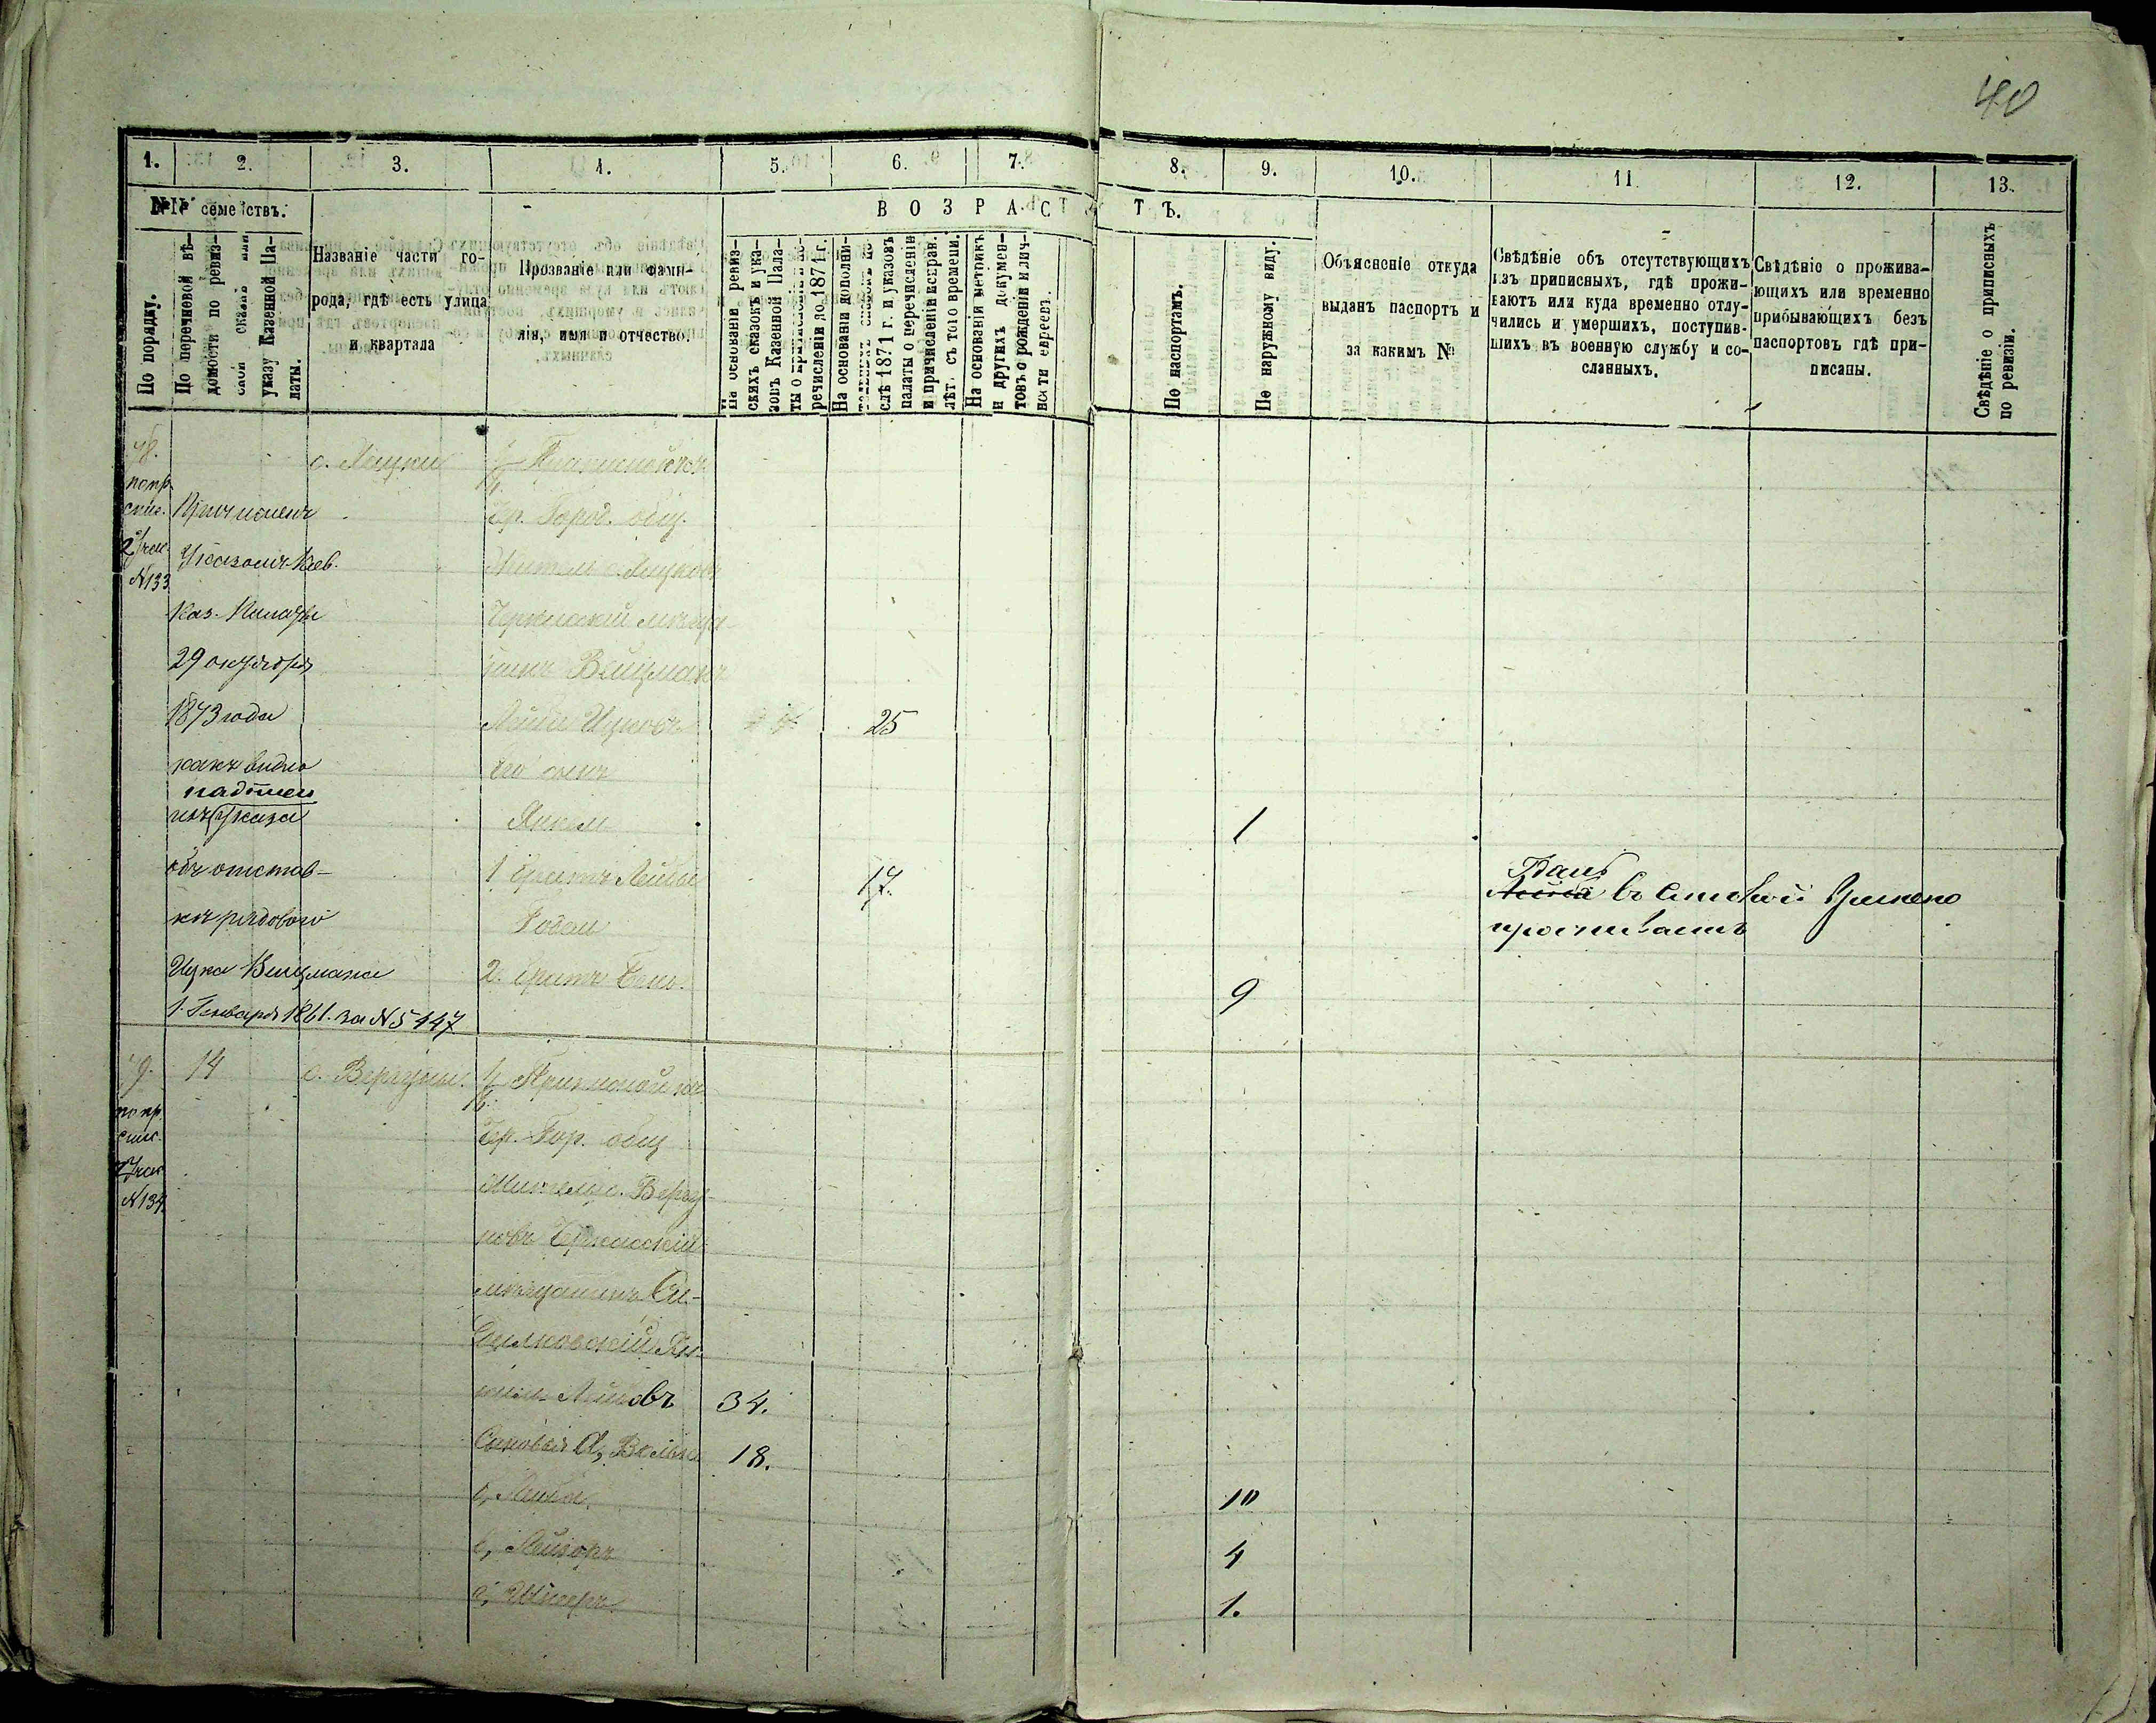 40
1. 2. 3. 4. 5. 6. 7. 8. 9. 10. 11. 12. 13.
№№ семействъ.
В О З Р А С Т Ъ.
По порядку.
По перечневой вѣ-
домости по ревиз-
ской сказкѣ или
указу Казенной Па-
латы.
Названіе части го-
рода, гдѣ есть улица
и квартала
Прозваніе или фами-
лія, имя и отчество.
На основаніи ревиз-
скихъ сказокъ и ука-
зовъ Казенной Пала-
ты о
речисленіи по 1871 г.
На основаніи дополни-
слѣ 1871 г. и указовъ
палаты о перечисленіи
и причисленіи исправ.
лѣт. съ того времени.
На основаніи метрикъ
и другихъ докумен-
товъ о рожденіи и лич-
ности евреевъ.
По паспортамъ.
По наружному виду.
Объясненіе откуда
выданъ паспортъ и
за какимъ №
Свѣдѣніе объ отсутствующихъ
изъ приписныхъ, гдѣ прожи-
ваютъ или куда временно отлу-
чились и умершихъ, поступив-
шихъ въ военную службу и со-
сланныхъ.
Свѣдѣніе о прожива-
ющихъ или временно
прибывающихъ безъ
паспортовъ гдѣ при-
писаны.
Свѣдѣніе о приписныхъ
по ревизіи.
78.
по пр.
спис.
2 Учас.
N 133
Причисленъ
Указомъ Кіев.
Каз. Палаты
29 октября
1873 года
какъ видно
изъ указа
объ отстав-
кѣ рядового
Ицка Вейцмана
1. Генваря 1861. за N 5447
с. Яцки
Чер. Город. общ.
Житель с. Яцковъ
Черкасскій мѣща-
нинъ Вейцманъ
Лейба Ицковъ 25
Его сынъ
Янкель 1
1 братъ Лейбы 17.
Годаль
2. братъ Бень. 9
проживаетъ
79. 14 с. Вергуны.
по пр.
спис.
2 Учас
N 134.
Чер. Гор. общ
Житель с. Вергу-
новъ Черкасскій
мѣщанинъ Си-
Ян-
кель Лейбовъ 34.
Сыновья а, Волько 18.
б, Лейба. 10
в, Лейзоръ 4
г, Шмеръ. 1.